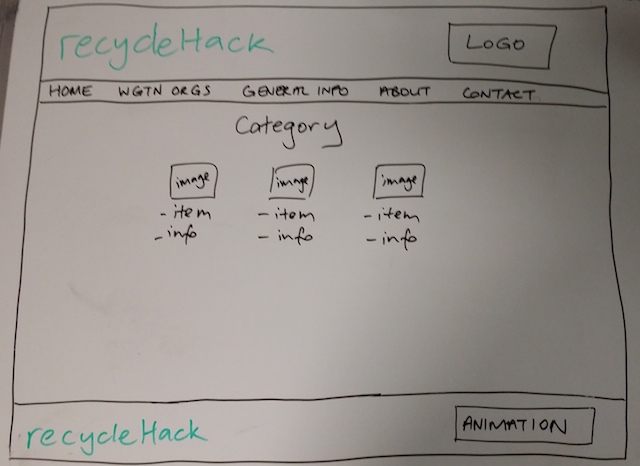 recycleHack LOGO
HOME WGTN ORGS GENERAL INFO ABOUT CONTACT
Category
image image image
- item - item - item
- info - info - info
recycleHack ANIMATION